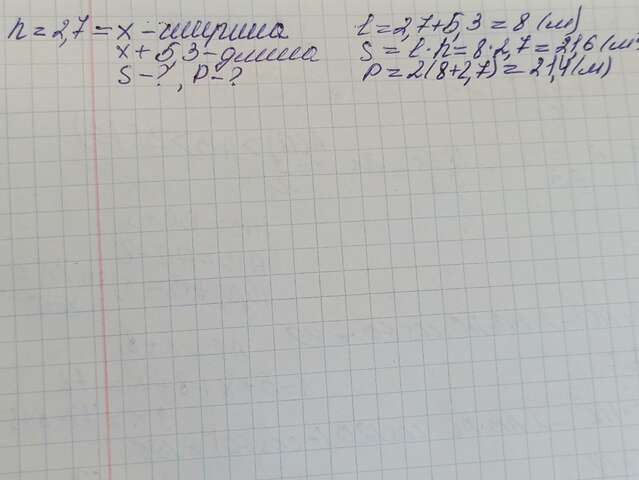 h = 2,7 = x - ширина
x + 5,3 - длина
S - ?, P - ?
l = 2,7 + 5,3 = 8 (м)
S = l · h = 8 · 2,7 = 21,6 (м²
P = 2(8+2,7) = 21,4 (м)